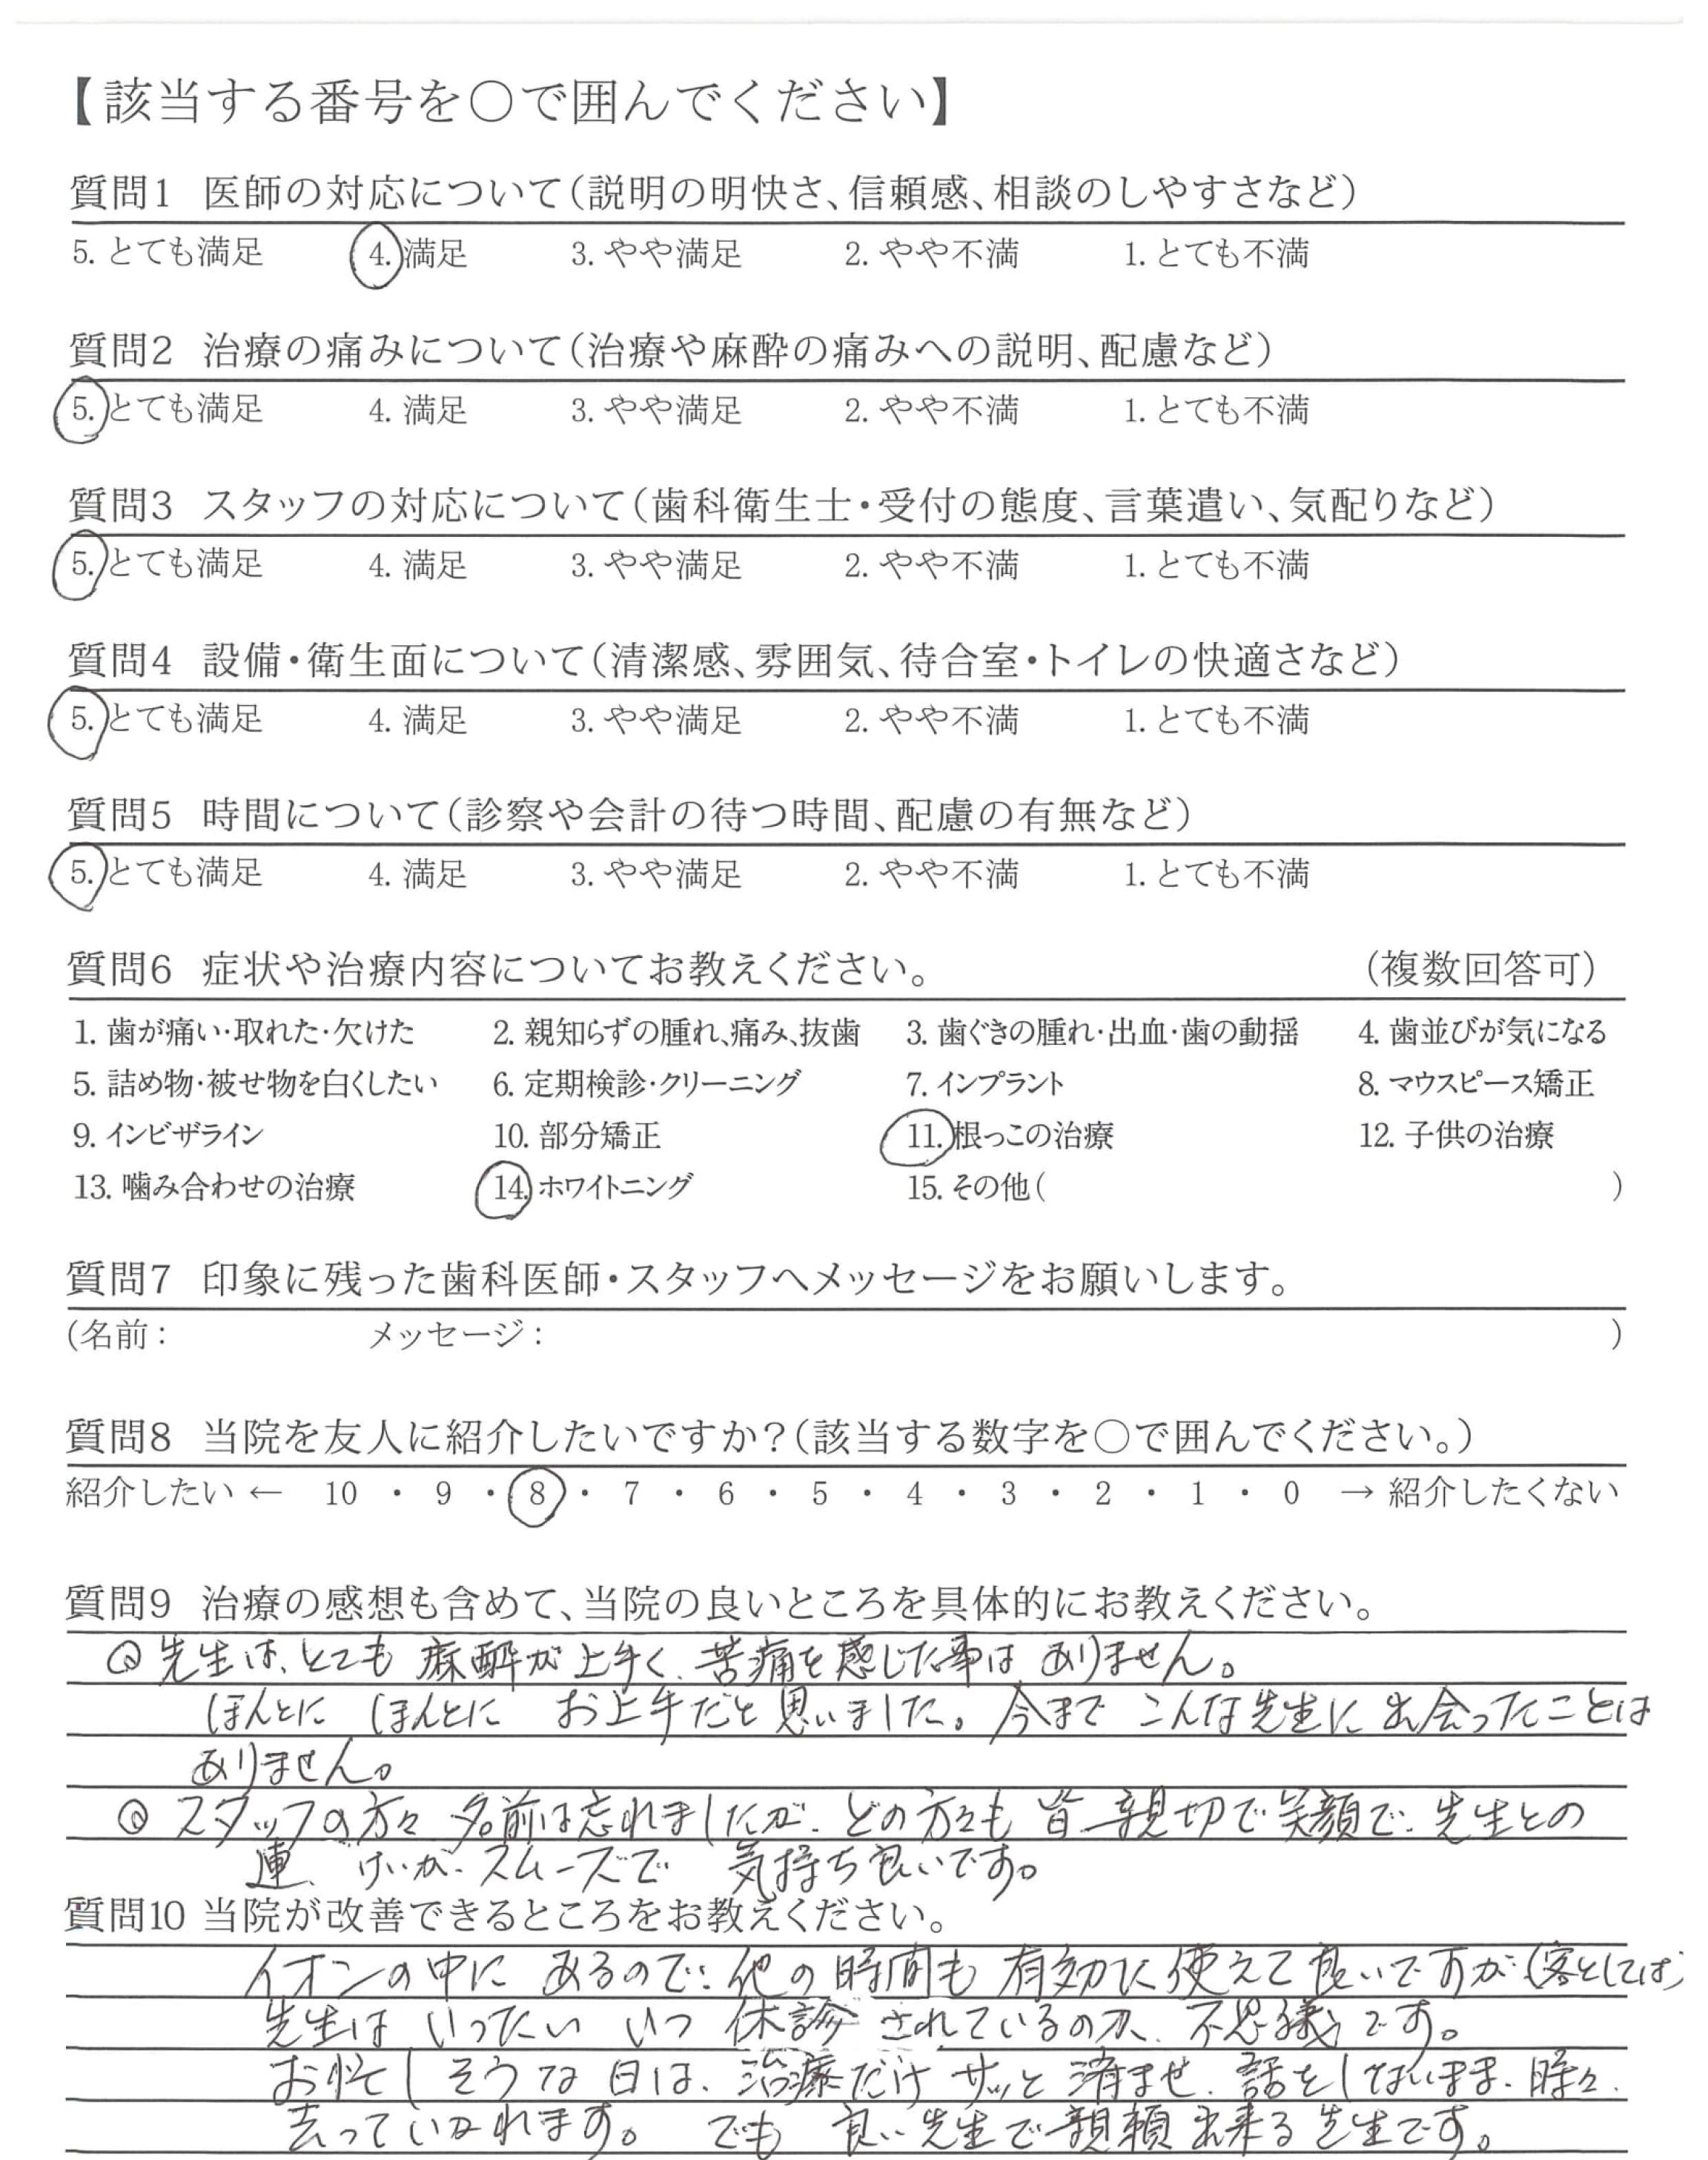 【該当する番号を○で囲んでください】
質問1 医師の対応について(説明の明快さ、信頼感、相談のしやすさなど)
5. とても満足 4. 満足 3. やや満足 2. やや不満 1. とても不満
質問2 治療の痛みについて(治療や麻酔の痛みへの説明、配慮など)
5. とても満足 4. 満足 3. やや満足 2. やや不満 1. とても不満
質問3 スタッフの対応について(歯科衛生士・受付の態度、言葉遣い、気配りなど)
5. とても満足 4. 満足 3. やや満足 2. やや不満 1. とても不満
質問4 設備・衛生面について(清潔感、雰囲気、待合室・トイレの快適さなど)
5. とても満足 4. 満足 3. やや満足 2. やや不満 1. とても不満
質問5 時間について(診察や会計の待つ時間、配慮の有無など)
5. とても満足 4. 満足 3. やや満足 2. やや不満 1. とても不満
質問6 症状や治療内容についてお教えください。 (複数回答可)
1. 歯が痛い・取れた・欠けた 2. 親知らずの腫れ、痛み、抜歯 3. 歯ぐきの腫れ・出血・歯の動揺 4. 歯並びが気になる
5. 詰め物・被せ物を白くしたい 6. 定期検診・クリーニング 7. インプラント 8. マウスピース矯正
9. インビザライン 10. 部分矯正 11. 根っこの治療 12. 子供の治療
13. 噛み合わせの治療 14. ホワイトニング 15. その他( )
質問7 印象に残った歯科医師・スタッフへメッセージをお願いします。
(名前: メッセージ: )
質問8 当院を友人に紹介したいですか?(該当する数字を○で囲んでください。)
紹介したい ← 10 ・ 9 ・ 8 ・ 7 ・ 6 ・ 5 ・ 4 ・ 3 ・ 2 ・ 1 ・ 0 → 紹介したくない
質問9 治療の感想も含めて、当院の良いところを具体的にお教えください。
◎ 先生は、とても 麻酔が上手く、苦痛を感じた事は ありません。
ほんとに ほんとに お上手だと思いました。今まで こんな先生に 出会ったことは
ありません。
◎ スタッフの方々 名前は忘れましたが、どの方々も 皆 親切で笑顔で、先生との
連けいが、スムーズで 気持ち良いです。
質問10 当院が改善できるところをお教えください。
イオンの中に あるので、他の時間も 有効に使えて良いですが(客としては)
先生は いったい いつ 休診 されているのか、不思議です。
お忙しそうな日は、治療だけ サッと 済ませ、話をしないまま、時々、
去っていかれます。 でも 良い先生で親頼出来る先生です。